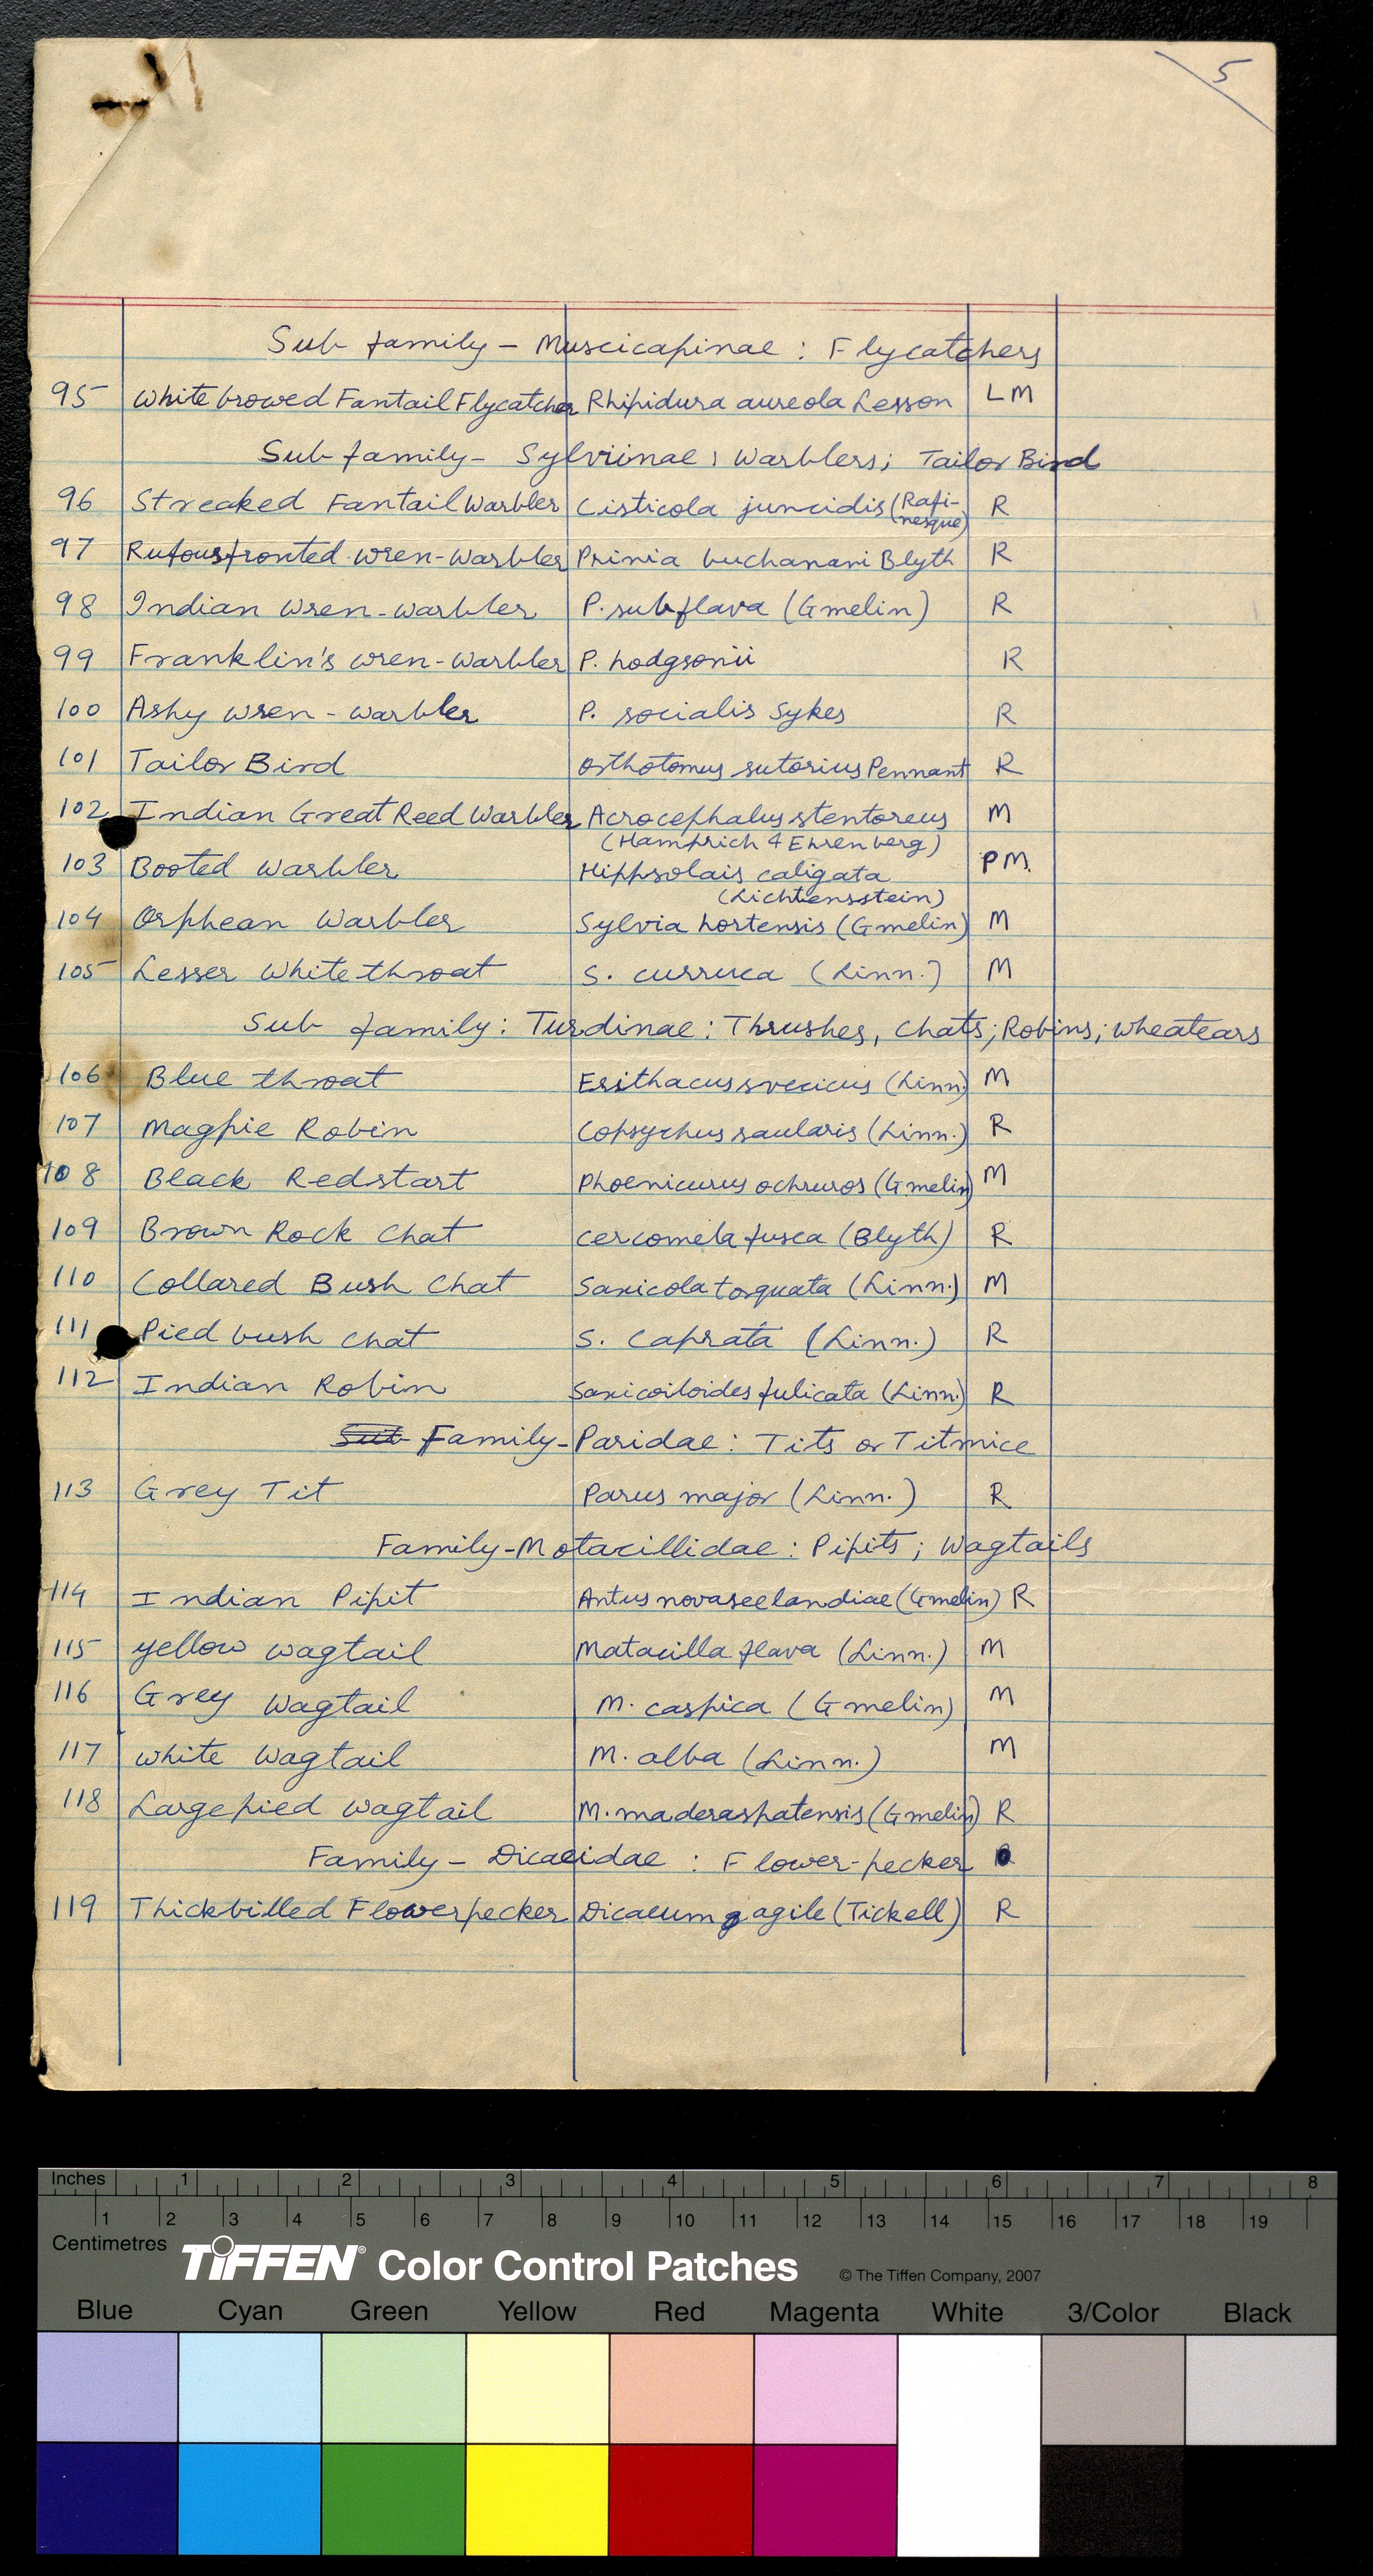 5
Sub family - Muscicapinae : Flycatchers
95 White browed Fantail Flycatcher Rhipidura aureola Lesson LM
Sub family - Sylviinae : Warblers; Tailor Bird
96 Streaked Fantail Warbler Cisticola juncidis (Rafi-
nesque) R
97 Rufousfronted wren-Warbler Prinia buchanani Blyth R
98 Indian Wren-warbler P. subflava (Gmelin) R
99 Franklin's wren-Warbler P. hodgsonii R
100 Ashy Wren-warbler P. socialis Sykes R
101 Tailor Bird Orthotomus sutorius Pennant R
102 Indian Great Reed Warbler Acrocephalus stentoreus M
(Hamprich & Ehrenberg)
103 Booted Warbler Hippsolais caligata PM.
(Lichtensstein)
104 Orphean Warbler Sylvia hortensis (Gmelin) M
105 Lesser Whitethroat S. curruca (Linn.) M
Sub family : Turdinae : Thrushes, Chats; Robins; wheatears
106 Blue throat Erithacus svecicus (Linn) M
107 Magpie Robin Copsychus saularis (Linn.) R
108 Black Redstart Phoenicurus ochruros (Gmelin) M
109 Brown Rock Chat cercomela fusca (Blyth) R
110 Collared Bush Chat Saxicola torquata (Linn.) M
111 Pied bush chat S. caprata (Linn.) R
112 Indian Robin Saxicoiloides fulicata (Linn.) R
Sub Family - Paridae : Tits or Titmice
113 Grey Tit Parus major (Linn.) R
Family - Motacillidae : Pipits ; Wagtails
114 Indian Pipit Antus novaseelandiae (Gmelin) R
115 yellow wagtail Matacilla flava (Linn.) M
116 Grey Wagtail M. caspica (Gmelin) M
117 white Wagtail M. alba (Linn.) M
118 Large pied wagtail M. maderaspatensis (Gmelin) R
Family - Dicaeidae : Flower-pecker
119 Thickbilled Flowerpecker Dicaeum agile (Tickell) R
Inches 1 2 3 4 5 6 7 8
1 2 3 4 5 6 7 8 9 10 11 12 13 14 15 16 17 18 19
Centimetres
TIFFEN® Color Control Patches © The Tiffen Company, 2007
Blue Cyan Green Yellow Red Magenta White 3/Color Black